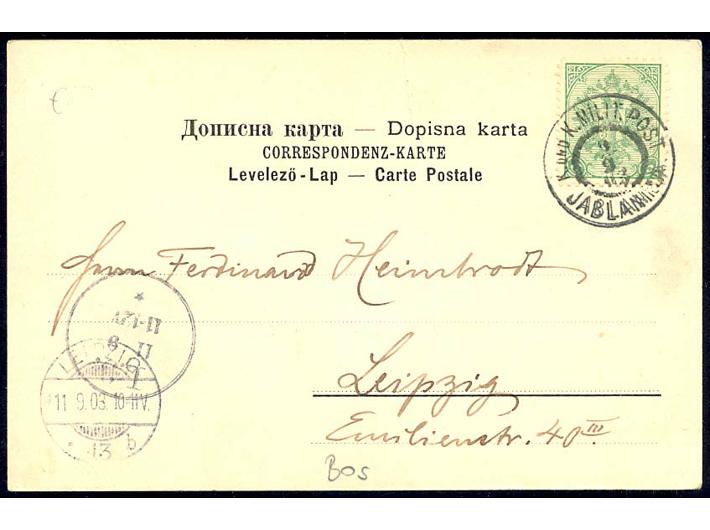 Дописна карта — Dopisna karta
CORRESPONDENZ-KARTE
Levelező-Lap — Carte Postale
K. UND K. MILIT. POST
9
03
JABLANICA
Herrn Ferdinand Heimbrodt
11-12V
11 9
LEIPZIG
11 9.03. 10-11V.
* 13 b
Leipzig
Emilienstr. 40 III.
Bos